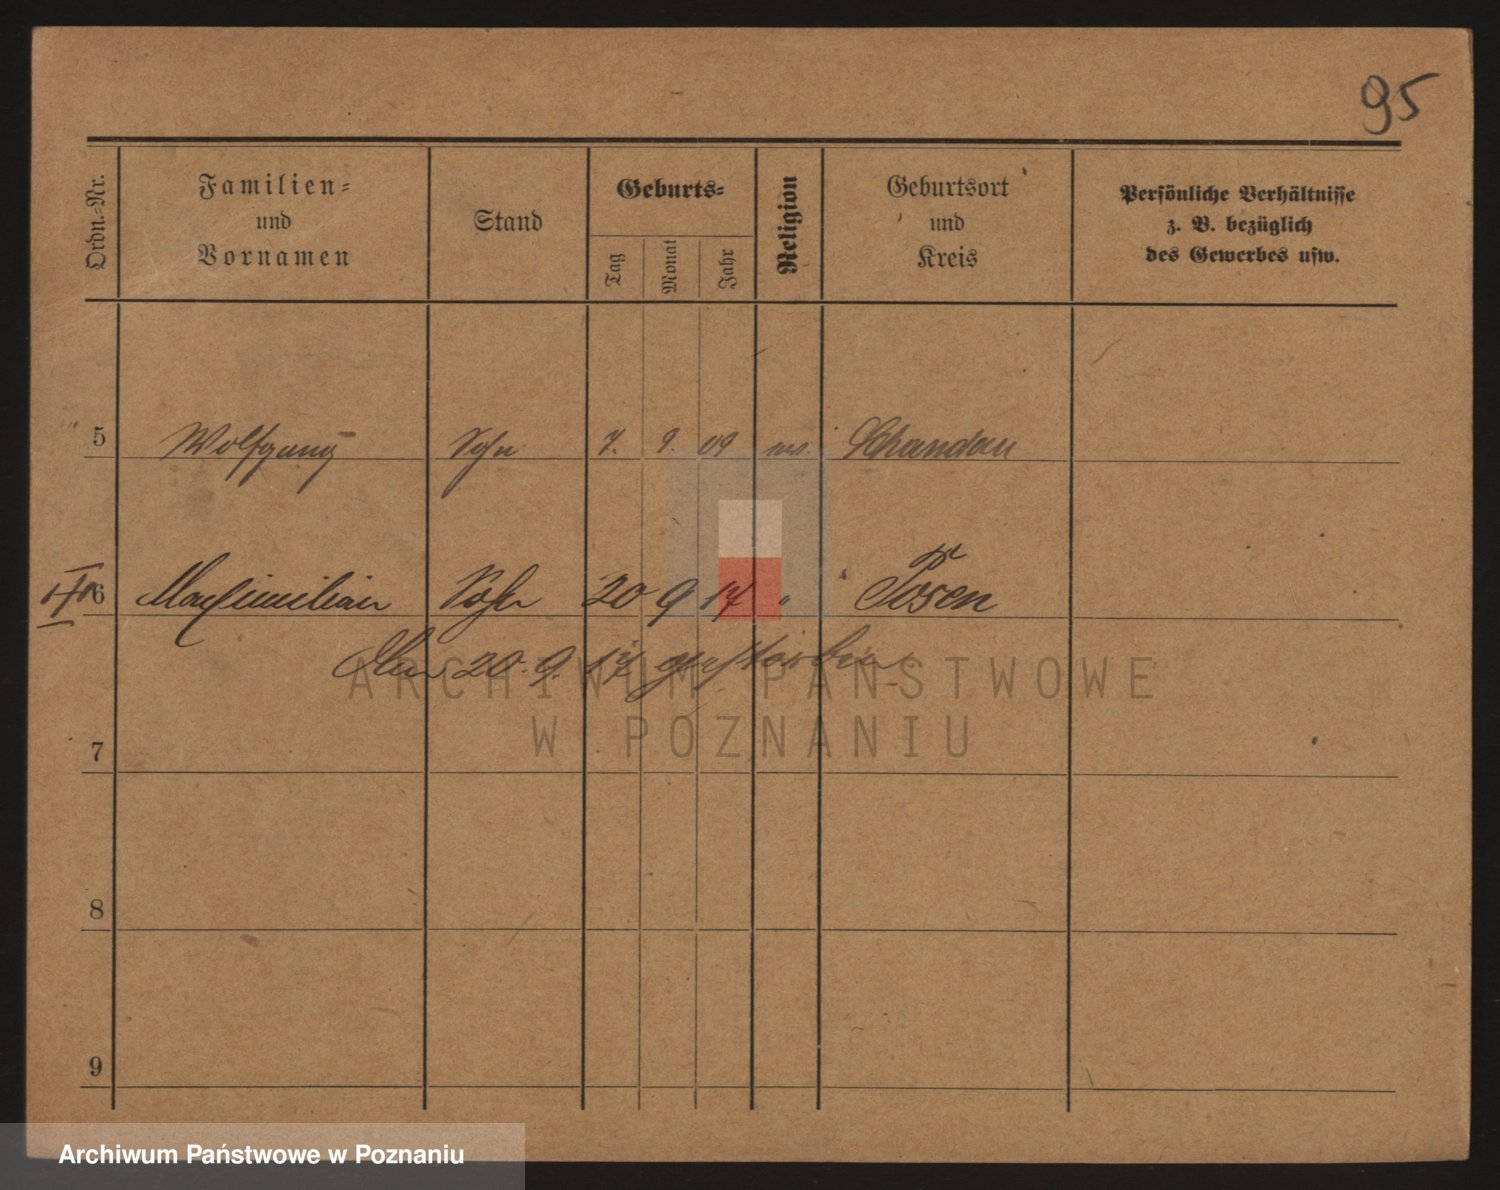 95
Ordn.-Nr.
Familien-
und
Vornamen
Stand
Geburts-
Tag
Monat
Jahr
Religion
Geburtsort
und
Kreis
Persönliche Verhältnisse
z. B. bezüglich
des Gewerbes usw.
5 Wolfgang Sohn 7. 9. 09 ev. Schandau
6 Maximilian Sohn 20 9 17 " Posen
Am 20.9.17 gestorben
ARCHIWUM PAŃSTWOWE
W POZNANIU
7
8
9
Archiwum Państwowe w Poznaniu